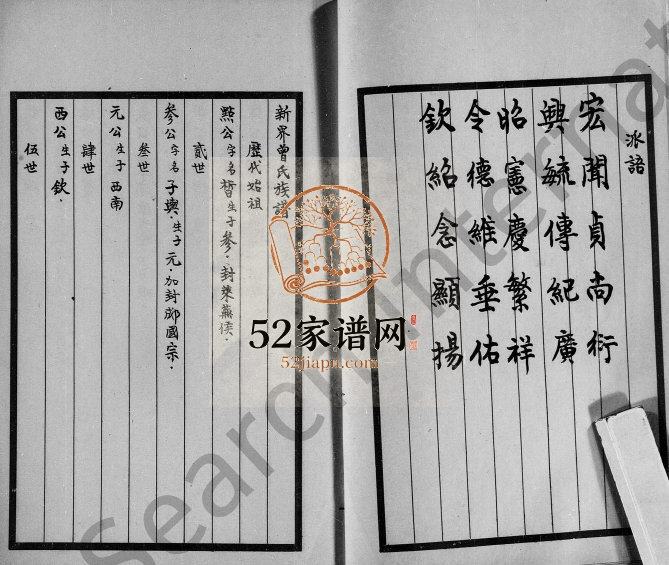 派語
宏聞貞尚衍
興毓傳紀廣
昭憲慶繁祥
令德維垂佑
欽紹念顯揚
新界曾氏族譜
歷代始祖
點公字名皙生子參．封萊蕪侯．
貳世
參公字名子輿．生子元．加封郕國宗．
叁世
元公生子西南
肆世
西公生子欽．
伍世
52家谱网
52jiapu.com
Search International